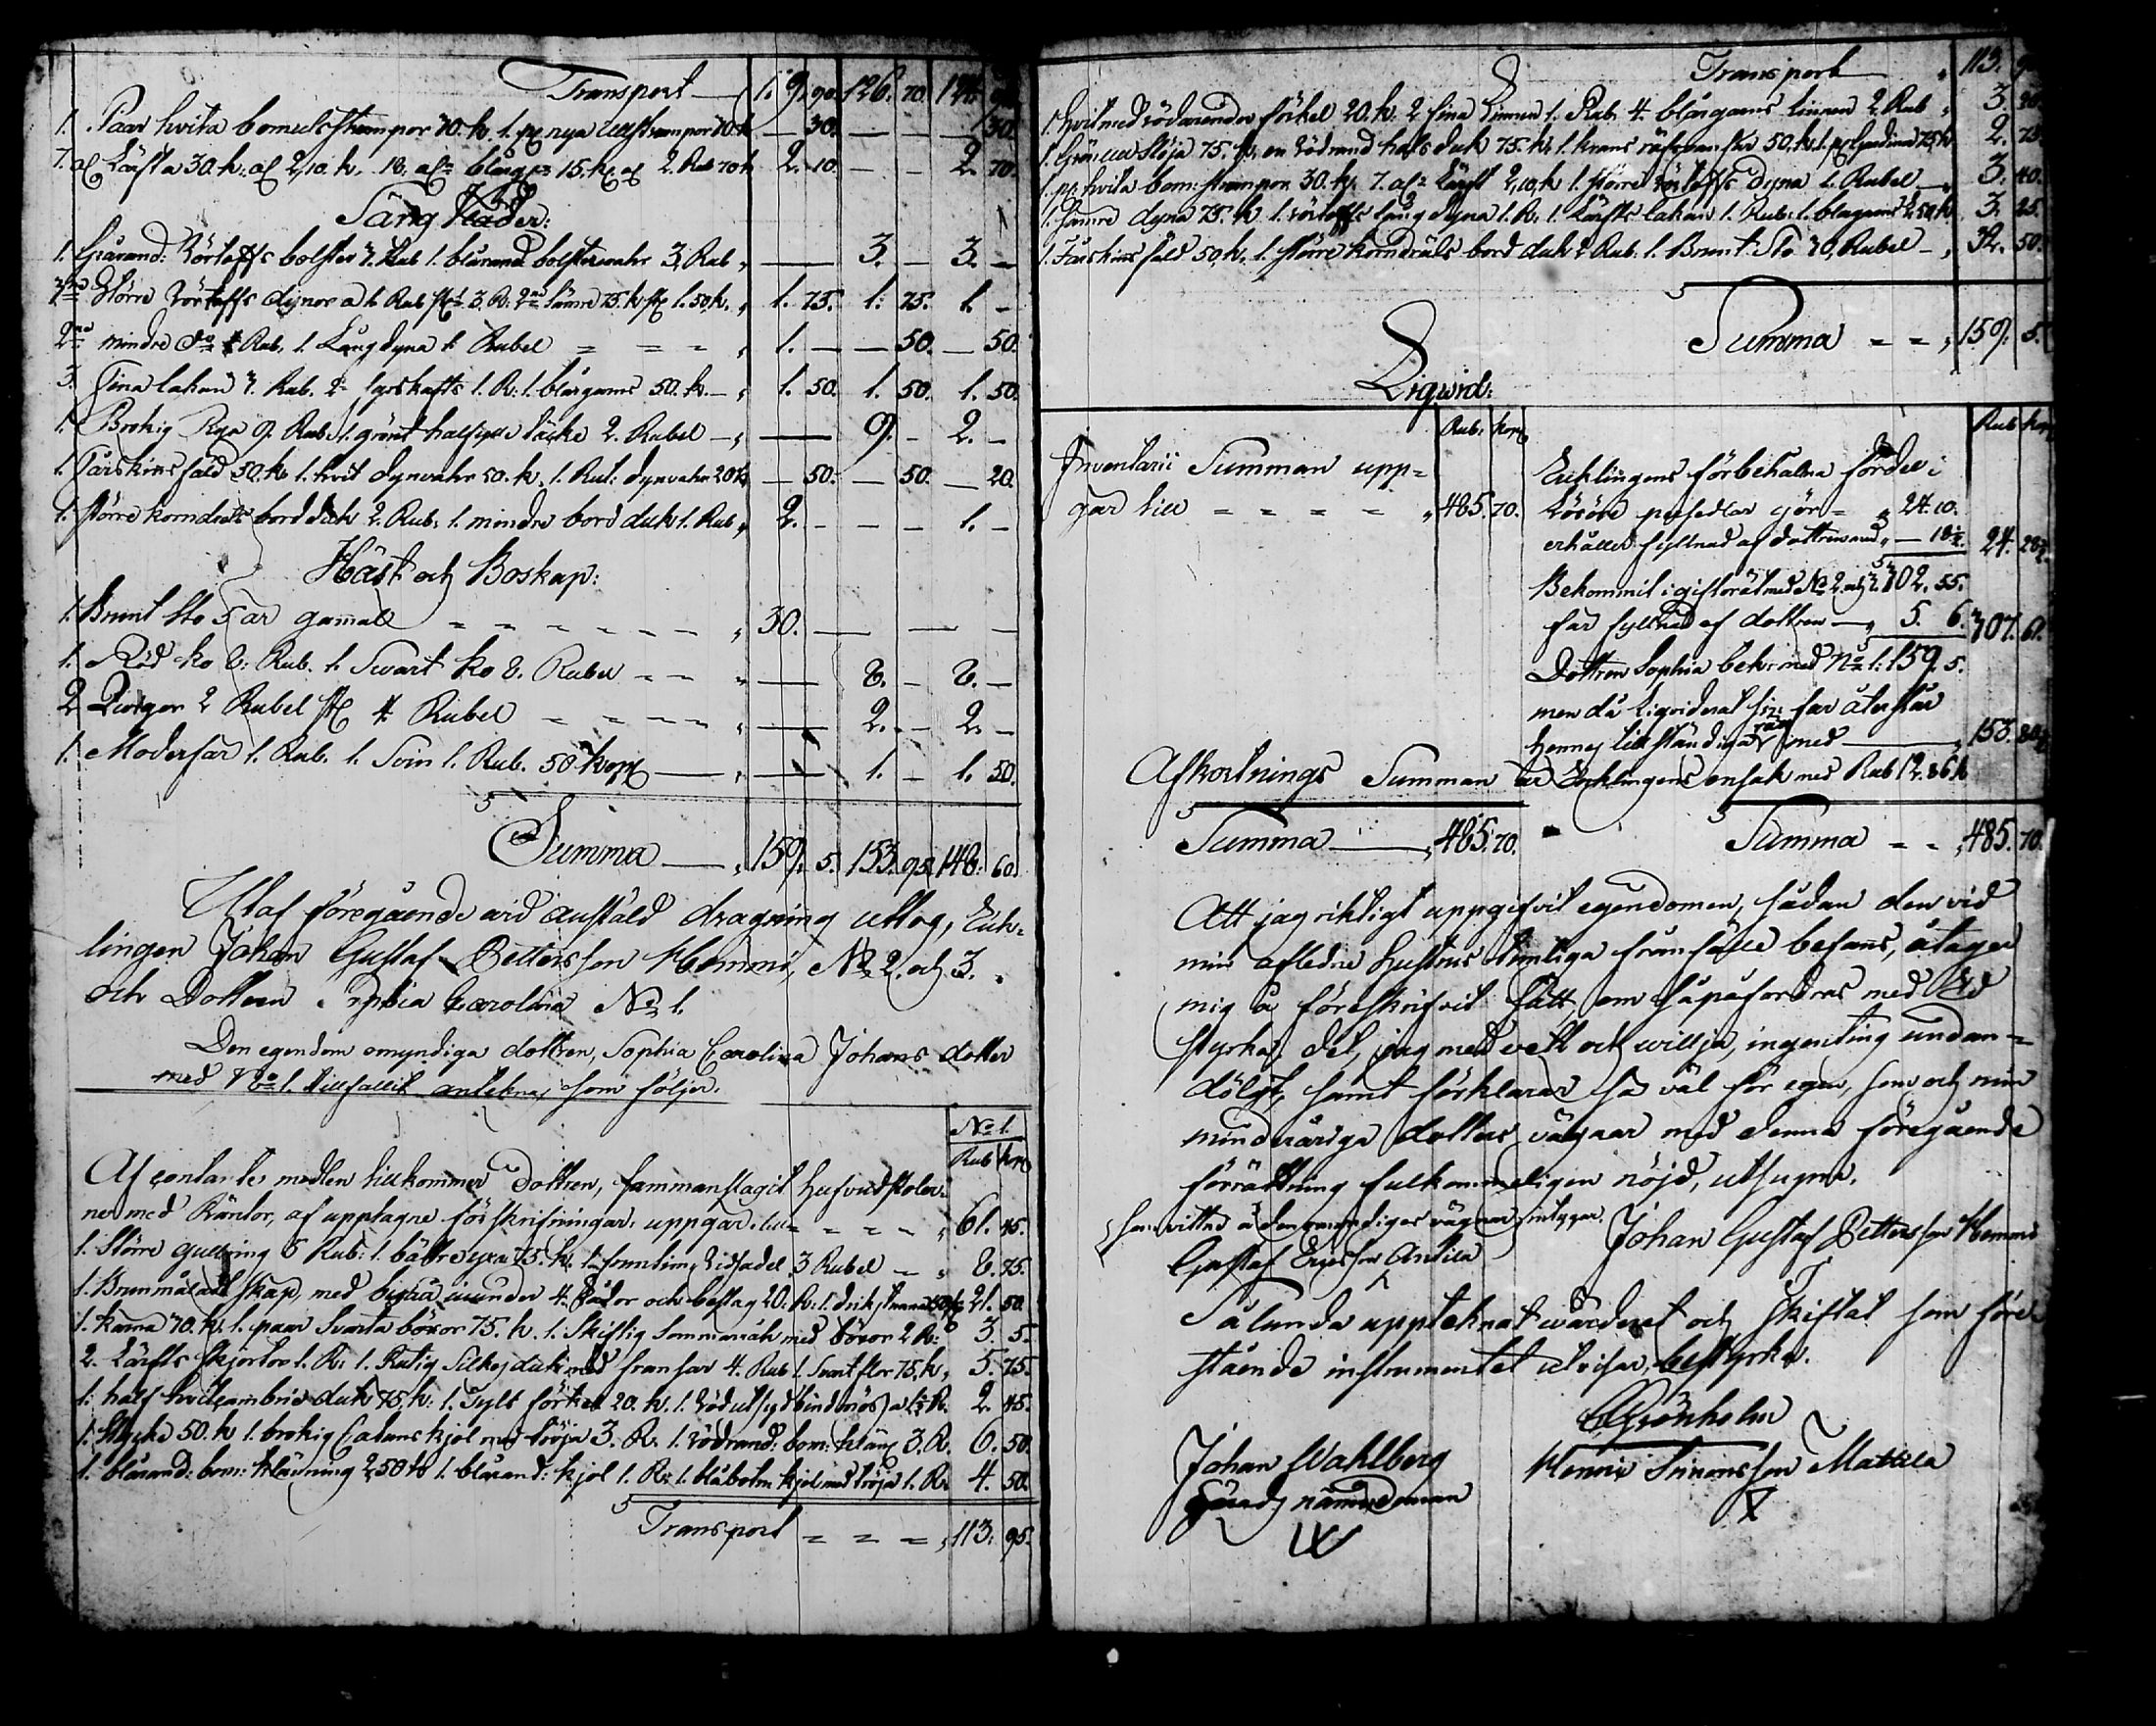 Transport — 1 9. 90. 126. 70. 124. 90.
1. Paar hvita bomulsstrumpor 70. k. 1. pr nya ullstrumpor 30. k — 30. — — — 30.
7. al Lärft a 30. k: al 2,10. k. 18. alr blåg: 15. k. al 2. Rub 70 k 2. 10. — — 2. 70.
Säng Kläder:
1. Grårand: Vörtoffs bolster 3. Rub 1. blårand bolsterwahr 3. Rub — 3. — 3. —
större Vörtoffs dynor a 1. Rub 3. R. sämre 75. k 1. 50 k. 1. 75. 1. 75. 1. —
2ne mindre do 1 Rub. 1. Långdyna 1. Rubel = = = 1. — — 50. — 50.
3. Fina lakan 3. Rub. 2. 1. R: 1. blårgarns 50. k. — 1. 50. 1. 50. 1. 50.
1. Brokig Rya 9. Rub. 1. grönt täcke 2. Rubel — — 9. — 2. —
1. Fårskins fäld 50. k 1. hvit dynvahr 50. k. 1. Rut: dynvahr 20 k — 50. — 50. — 20.
1. större korndräls bord duk 2. Rub. 1. mindre bord duk 1. Rub 2. — — — 1. —
Häst och Boskap:
1. Brunt sto 5 år gammal = = = = = = 30. — — —
1. Röd ko 8. Rub. 1. Svart ko 8. Rubel — — 8. — 8. —
2 Qwigor 2 Rubel st 4 Rubel = = = = — 2. — 2. —
1. Moderfår 1. Rub. 1. Svin 1. Rub. 50 kop — — 1. — 1. 50.
Summa — 159. 5. 153. 95. 148. 60.
Utaf föregående vid anstäld dragning uttog, Enk-
lingen Johan Gustaf Pettersson Hemmi, No 2. och 3.
och Dottren Sophia Carolina No 1.
Den egendom omyndiga dottren, Sophia Carolina Johans dotter
med No 1. tillfallit anteknas som följer.
No 1.
Rub kop
Af contante medlen tillkommer Dottren, sammanslagit hufvudstolar-
ne med Räntor, af upptagne förskrifningar, uppgår till = = = 61. 45.
1. större gullring 5 Rub: 1. bättre 75. k. 1. fruntim: Ridsadel 3 Rubel — 8. 75.
1. Brunmålad skåp, med byrå inunder 4. lådor och beslag 20. R: 1. 21. 50.
1. kanna 70. k. 1. paar Svarta böxor 75. k. 1. Skiftig med böxor 2 R: 3. 5.
2. Lärfts skjortor 1. R: 1. Rutig Silkes duk med fransar 4. Rub 1. Svart flor 75. k. 5. 75.
1. half hvit cambric duk 75. k: 1. Sylt förkel 20. k. 1. Röd utsyd bindmös a 1½ R. 2. 45.
1. stycke 50. k 1. brokig Catuns kjol med tröja 3. R. 1. Rödrand: bom: kläng 3. R. 6. 50.
1. blårand: bom: klädning 2,50 k 1. blårand: kjol 1. R. 1. blåbotn: kjol med tröja 1. R. 4. 50.
Transport = = = 113. 95.
Transport 113. 95
1. hvit med röda ränder förkel 20. k. 2 fina Linnen 1. Rub. 4. blårgarns linnen 2. Rub 3. 20.
1. Grön ull slöja 75. k. en Rödrand hals duk 75. k. 1. krans 50. k. 1. pr 75. k 2. 75.
1. pr hvita bom: strumpor 30. k. 7. alr Lärft 2,10. k 1. större Vörtoffs Dyna 1. Rubel — 3. 40.
1. sämre dyna 75. k 1. Vörtoffs lång dyna 1. R. 1. Lärfts lakan 1. Rub. 1. blårgarns 50. k 3. 25.
1. Fårskins fäld 50. k. 1. större korndräls bord duk 2 Rub. 1. Brunt Sto 30, Rubel — 32. 50.
Summa = = 159. 5.
Liqwid:
Rub: kop
Inventarii Summan upp-
går till = = = = 485. 70.
Rub kop
Enklingens förbehållna fördel i
Lösöre gör = 24. 10.
erhåller fyllnad af dottren med — 18½. 24. 28½.
Bekommit i giftorätt med No 2. och 3. 302. 55.
får fyllnad af dottren — 5. 6. 307. 61.
Dottren Sophia bek: med No 1: 159. 5.
men då Liqviderat som får återstår
hennes tillständiga med — 153. 80½
Afkortnings Summan är Enklingens ensak med Rub 12. 86 k
Summa — 485. 70. Summa = = 485. 70.
Att jag riktigt uppgifvit egendomen, sådan den vid
min aflednе hustrus timliga frånfälle befans, åtager
mig å föreskrifvit sätt, om så påfordras med Ed
styrka; det, jag med vett och willja, ingenting undan-
dölgt, samt förklarar så väl för egen, som och min
minderåriga dotters vägnar med denna föregående
förrättning fulkomligen nöjd, utsagne.
Johan Gustaf Pettersson Hemmi
som vittne å den omyndigas vägnar intygar.
Gustaf Ersson Antila
Sålunda uppteknat värderat och skiftat som före-
stående instrumentet utvisar, bestyrka.
Grönholm
Johan Wahlberg Henric Simonsson Mattila
Härads nämndeman